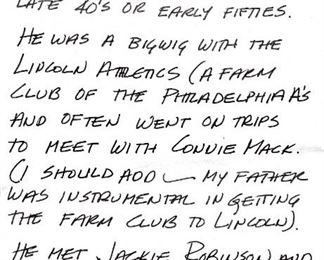 LATE 40'S OR EARLY FIFTIES.
HE WAS A BIGWIG WITH THE
LINCOLN ATHLETICS (A FARM
CLUB OF THE PHILADELPHIA A'S
AND OFTEN WENT ON TRIPS
TO MEET WITH CONNIE MACK.
(I SHOULD ADD — MY FATHER
WAS INSTRUMENTAL IN GETTING
THE FARM CLUB TO LINCOLN).
HE MET JACKIE ROBINSON AND